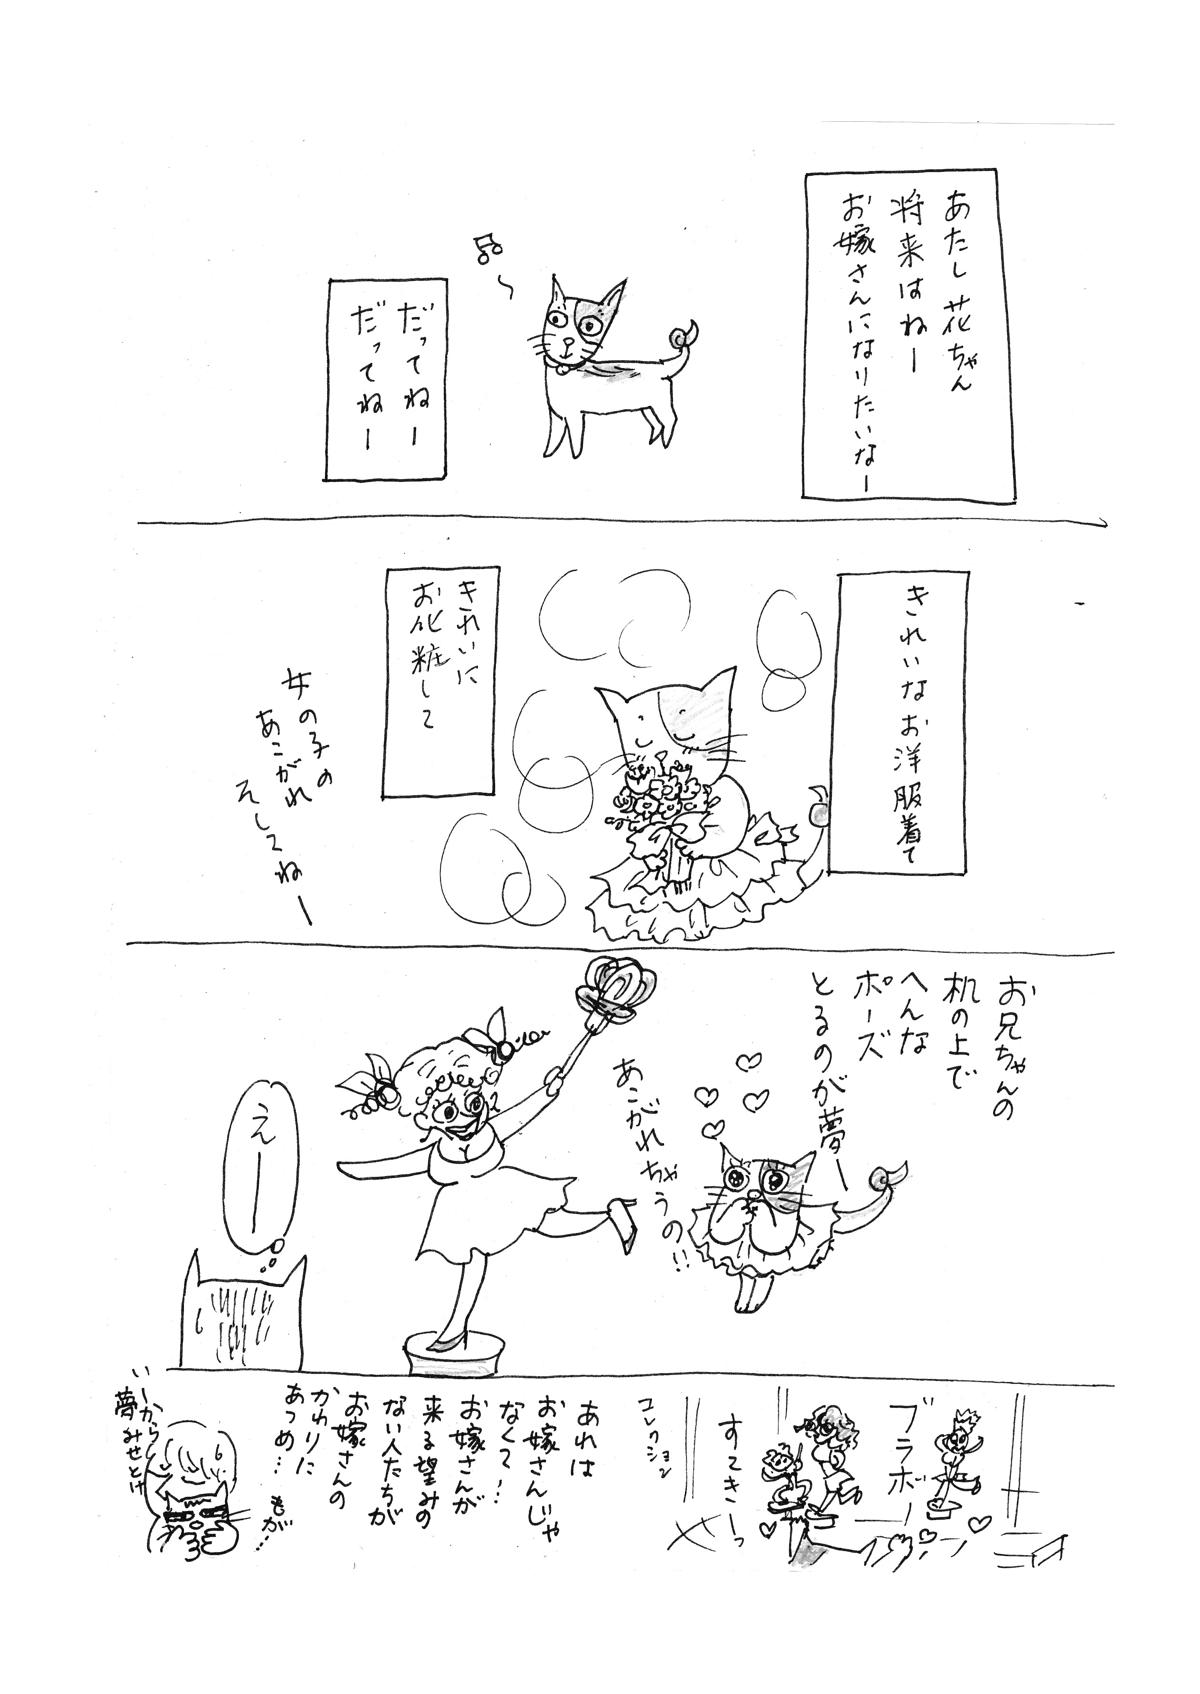 あたし花ちゃん
将来はねー
お嫁さんになりたいなー
だってねー
だってねー
きれいなお洋服着て
きれいに
お化粧して
女の子の
あこがれ
そしてねー
お兄ちゃんの
机の上で
へんな
ポーズ
とるのが夢ー
あこがれちゃうの!!
えー
ブラボー
すてきーっ
コレクション
あれは
お嫁さんじゃ
なくて…
お嫁さんが
来る望みの
ない人たちが
お嫁さんの
かわりに
あつめ…
もが…
いーから
夢みせとけ